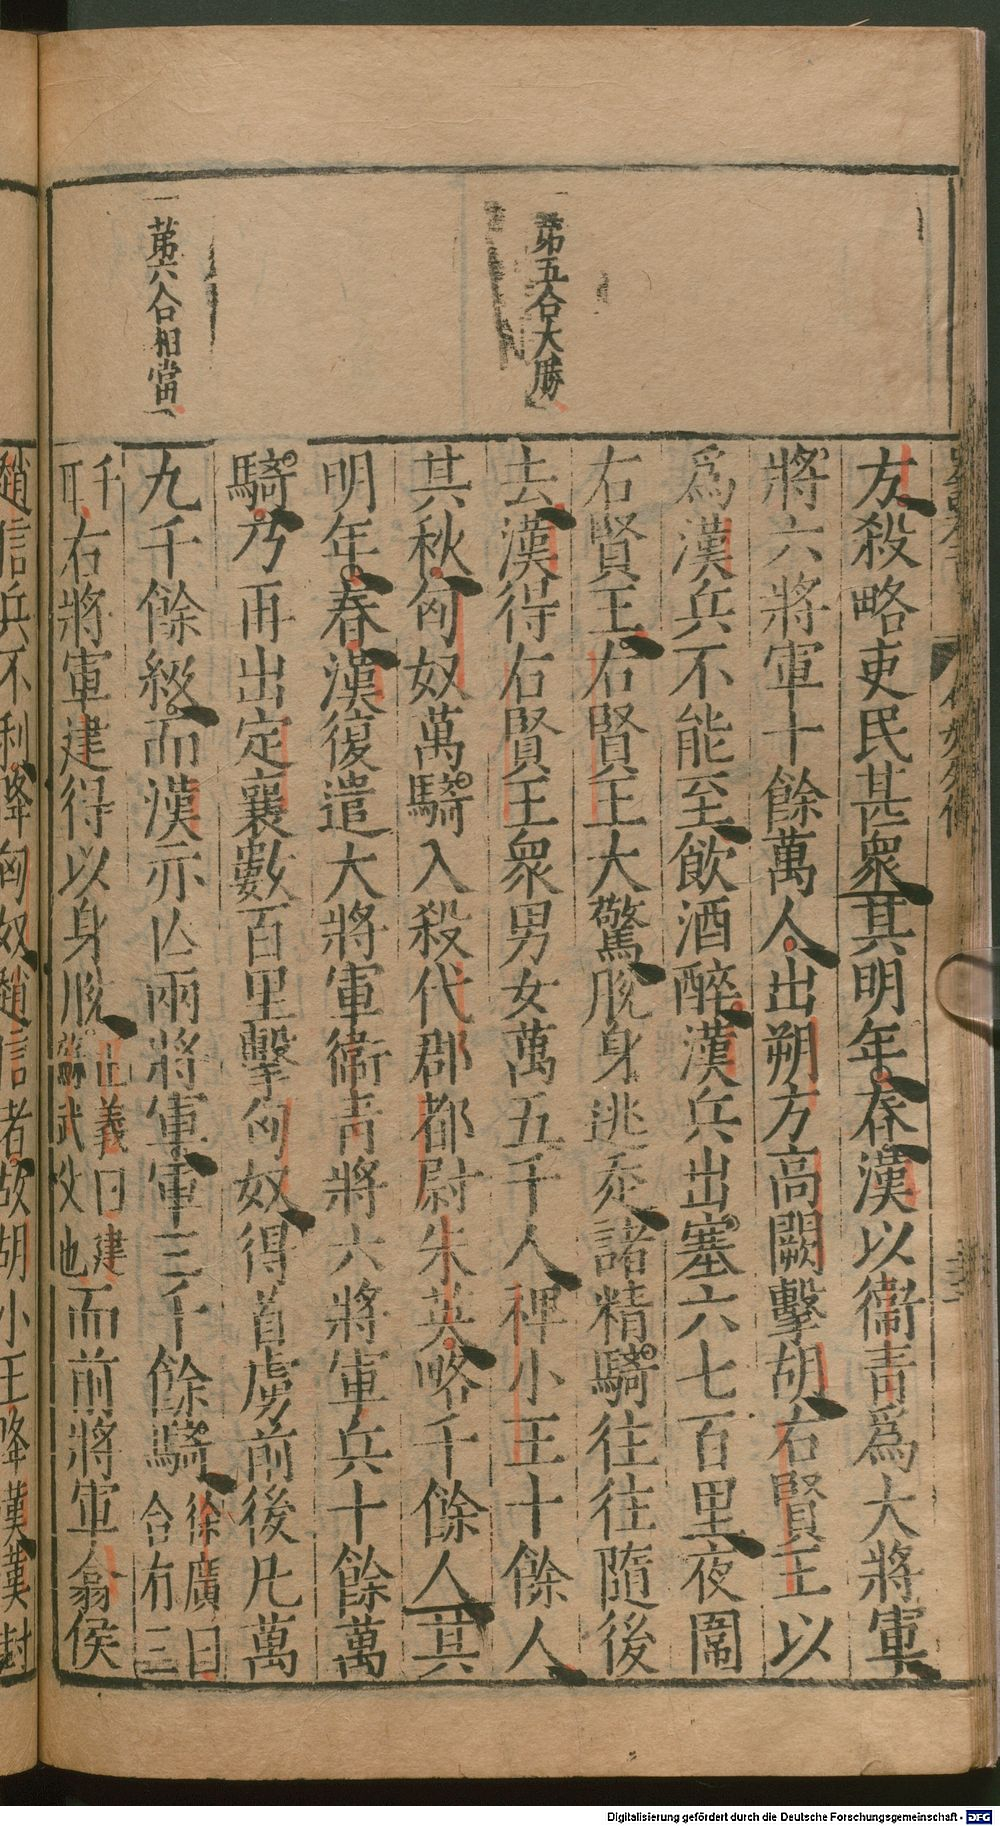 第五合大勝
第六合相當
方殺略吏民甚衆其明年春漢以衞青爲大將軍
將六將軍十餘萬人出朔方高闕擊胡右賢王以
爲漢兵不能至飲酒醉漢兵出塞六七百里夜圍
右賢王右賢王大驚脫身逃走諸精騎往往隨後
去漢得右賢王衆男女萬五千人裨小王十餘人
其秋匈奴萬騎入殺代郡都尉朱英略千餘人其
明年春漢復遣大將軍衞青將六將軍兵十餘萬
騎乃再出定襄數百里擊匈奴得首虜前後凡萬
九千餘級而漢亦亡兩將軍軍三千餘騎徐廣曰合有三
千耳右將軍建得以身脫正義曰建蘇武父也而前將軍翕侯
趙信兵不利降匈奴趙信者故胡小王降漢漢封
Digitalisierung gefördert durch die Deutsche Forschungsgemeinschaft - DFG